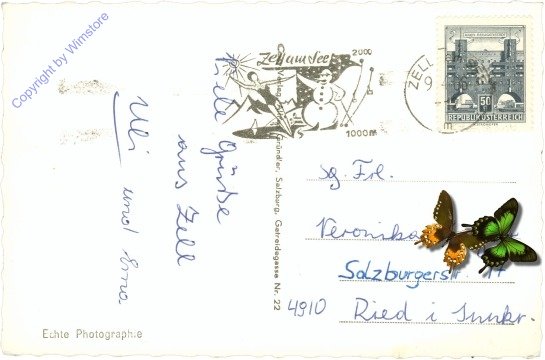 Copyright by Wimstore
Zell am See
2000
1000 m
ZELL
9
WIENER GEMEINDEBAUTEN
50
REPUBLIK ÖSTERREICH
Gründler, Salzburg, Getreidegasse Nr. 22
Viele Grüße
aus Zell
Uli und Erna
Sg. Frl.
Veronika
Salzburgerstr.
4910 Ried i Innkr.
Echte Photographie